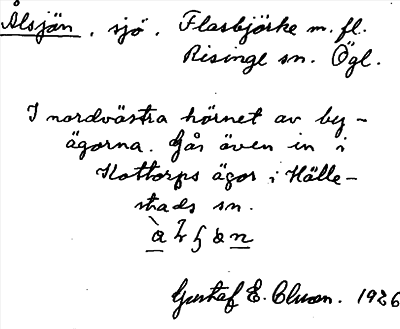 Ålsjän, sjö. Flasbjörke m. fl.
Risinge sn. Ögl.
I nordvästra hörnet av by-
ägorna. Går även in i
Kottorps ägor i Hälle-
stads sn.
Gustaf E. Olsson. 1926